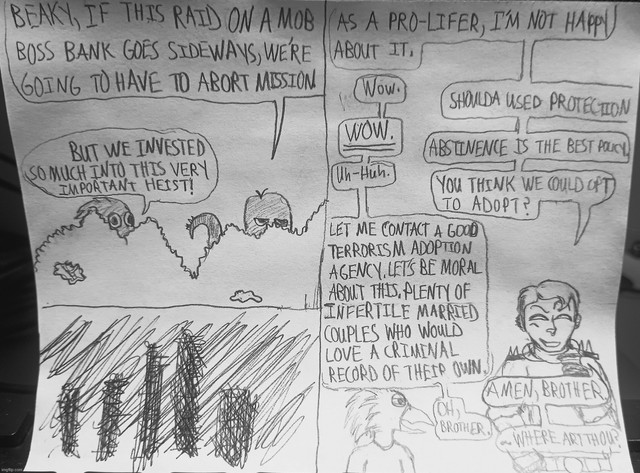 BEAKY, IF THIS RAID ON A MOB
BOSS BANK GOES SIDEWAYS, WE'RE
GOING TO HAVE TO ABORT MISSION
BUT WE INVESTED
SO MUCH INTO THIS VERY
IMPORTANT HEIST!
AS A PRO-LIFER, I'M NOT HAPPY
ABOUT IT.
WOW.
SHOULDA USED PROTECTION
WOW.
ABSTINENCE IS THE BEST POLICY.
UH-HUH.
YOU THINK WE COULD OPT
TO ADOPT?
LET ME CONTACT A GOOD
TERRORISM ADOPTION
AGENCY. LET'S BE MORAL
ABOUT THIS. PLENTY OF
INFERTILE MARRIED
COUPLES WHO WOULD
LOVE A CRIMINAL
RECORD OF THEIR OWN.
AMEN, BROTHER
OH,
BROTHER.
... WHERE ART THOU?
imgflip.com